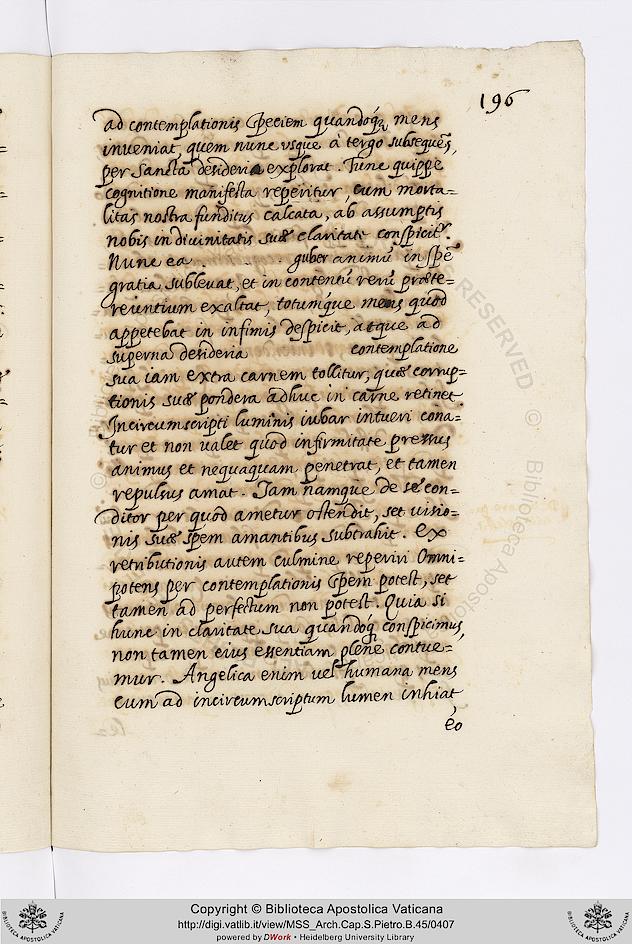 196
ad contemplationis speciem quandoq́; mens
inueniat, quem nunc vsque à tergo subsequẽs,
per Sancta desideria explorat. Tunc quippe
cognitione manifesta reperitur, cum morta=
litas nostra funditus calcata, ab assumptis
nobis in diuinitatis suæ claritate conspicit᷑.
Nunc ea . . . . guber animũ in spẽ
gratia subleuat, et in contentũ rerũ præte=
reuntium exaltat, totumq́ue mens quod
appetebat in infimis despicit, atque ad
superna desideria contemplatione
sua iam extra carnem tollitur, quæ corrup=
tionis suæ pondera adhuc in carne retinet.
Incircumscripti luminis iubar intueri cona=
tur et non valet quod infirmitate pressus
animus et nequaquam penetrat, et tamen
repulsus amat. Iam namque de se con=
ditor per quod ametur ostendit, set uisio=
nis suæ spem amantibus subtrahit. Ex
retributionis autem culmine reperiri Omni=
potens per contemplationis spem potest, set
tamen ad perfectum non potest. Quia si
hunc in claritate sua quandoq́; conspicimus,
non tamen eius essentiam plene contue=
mur. Angelica enim uel humana mens
cum ad incircumscriptum lumen inhiat
eo
RESERVED © Biblioteca Aposto
Copyright © Biblioteca Apostolica Vaticana
http://digi.vatlib.it/view/MSS_Arch.Cap.S.Pietro.B.45/0407
powered by DWork • Heidelberg University Library